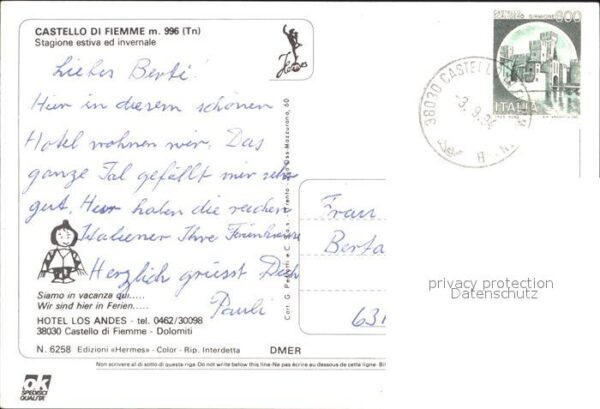 CASTELLO DI FIEMME m. 996 (Tn)
Stagione estiva ed invernale
Liebes Berti!
Hier in diesem schönen
Hotel wohnen wir. Das
ganze Tal gefällt mir sehr
gut. Hier haben die reichen
Italiener Ihre Ferienhäuser
Herzlich grüsst Dich
Pauli
Siamo in vacanza qui.....
Wir sind hier in Ferien.....
HOTEL LOS ANDES - tel. 0462/30098
38030 Castello di Fiemme - Dolomiti
N. 6258 Edizioni «Hermes» - Color - Rip. Interdetta DMER
Non scrivere al di sotto di questa riga-Do not write below this line-Ne pas écrire au dessous de cette ligne
ok
SPEDISCI
QUALITA'
Trento - Via Oss-Mazzurana, 60
38030 CASTELLO
3.9.84
CASTELLO
SIRMIONE
ITALIA
Frau
Berta
privacy protection
Datenschutz